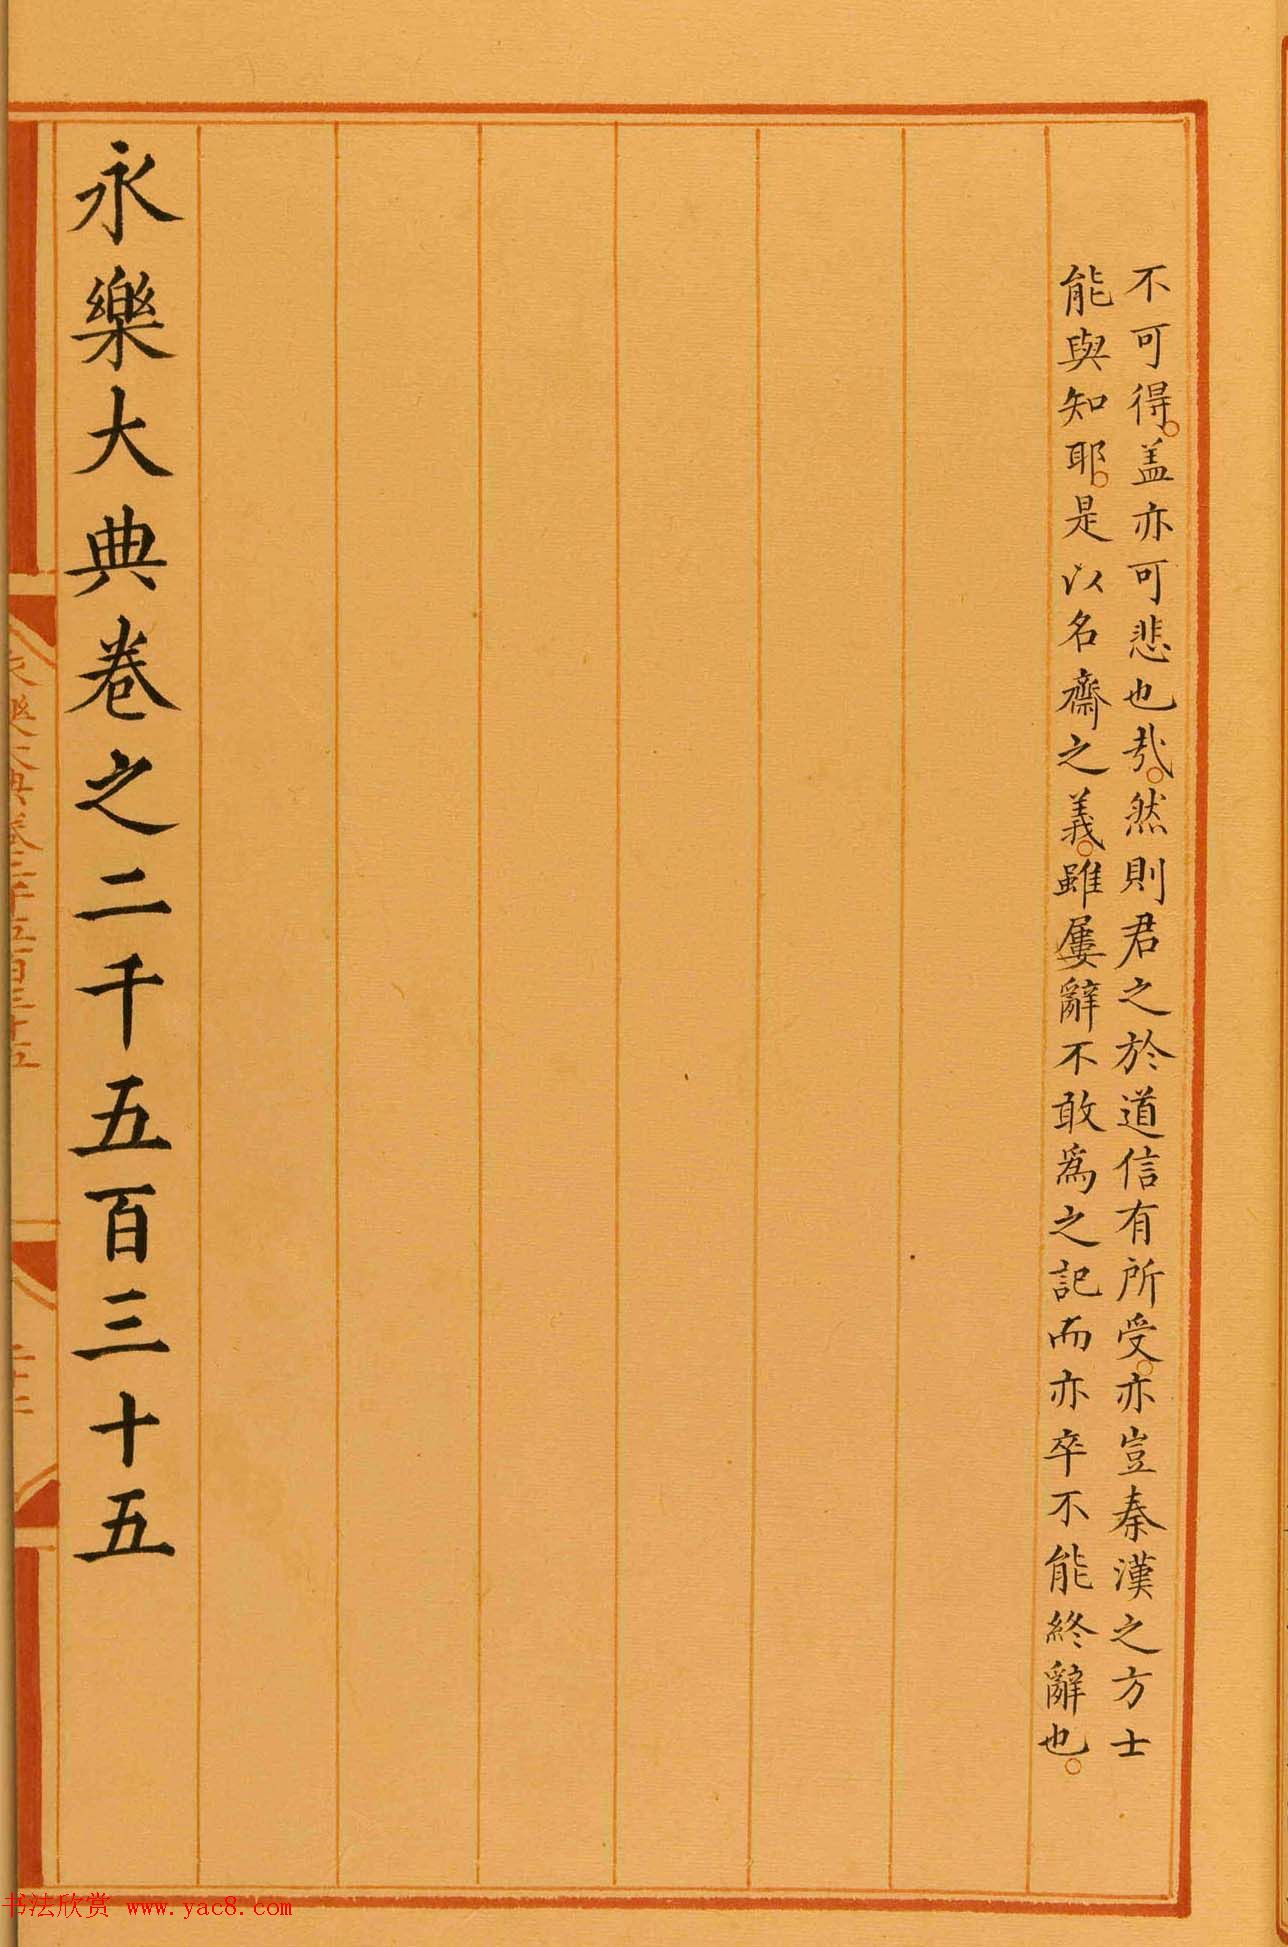 不可得。盖亦可悲也哉。然則君之於道信有所受。亦豈秦漢之方士
能與知耶。是以名齋之義。雖屢辭不敢為之記而亦卒不能終辭也。
永樂大典卷之二千五百三十五
永樂大典卷二千五百三十五
书法欣赏 www.yac8.com